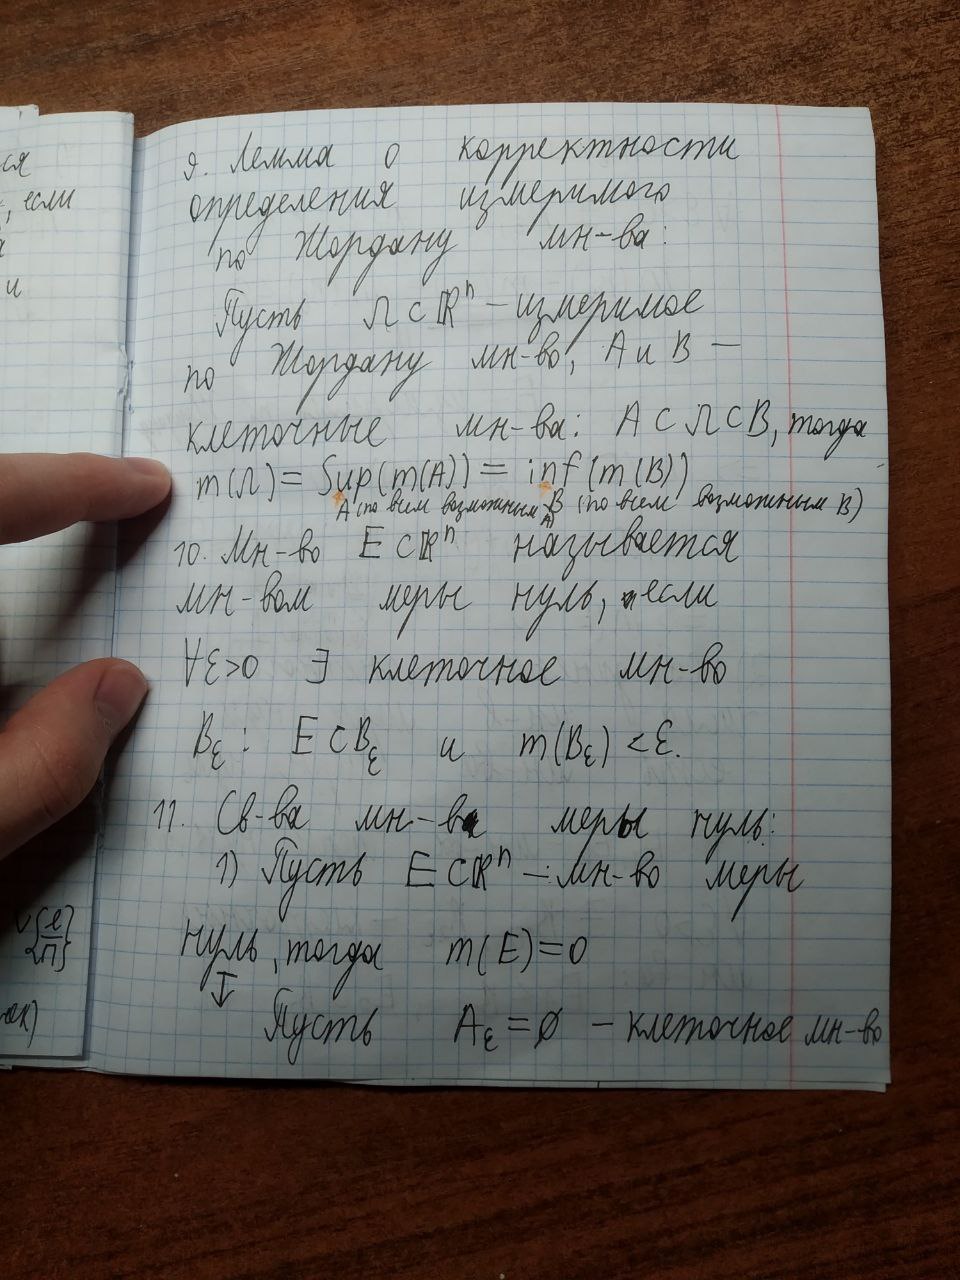 ся
, если
и
9. Лемма о корректности
определения измеримого
по Жордану мн-ва:
Пусть Ω ⊂ ℝⁿ – измеримое
по Жордану мн-во, A и B –
клеточные мн-ва: A ⊂ Ω ⊂ B, тогда
m(Ω) = Sup(m(A)) = inf(m(B))
A (по всем возможным A) B (по всем возможным B)
10. Мн-во E ⊂ ℝⁿ называется
мн-вом меры нуль, если
∀ε>0 ∃ клеточное мн-во
Bε: E ⊂ Bε и m(Bε) < ε.
11. Св-ва мн-ва меры нуль:
1) Пусть E ⊂ ℝⁿ – мн-во меры
нуль, тогда m(E)=0
Пусть Aε = ∅ – клеточное мн-во